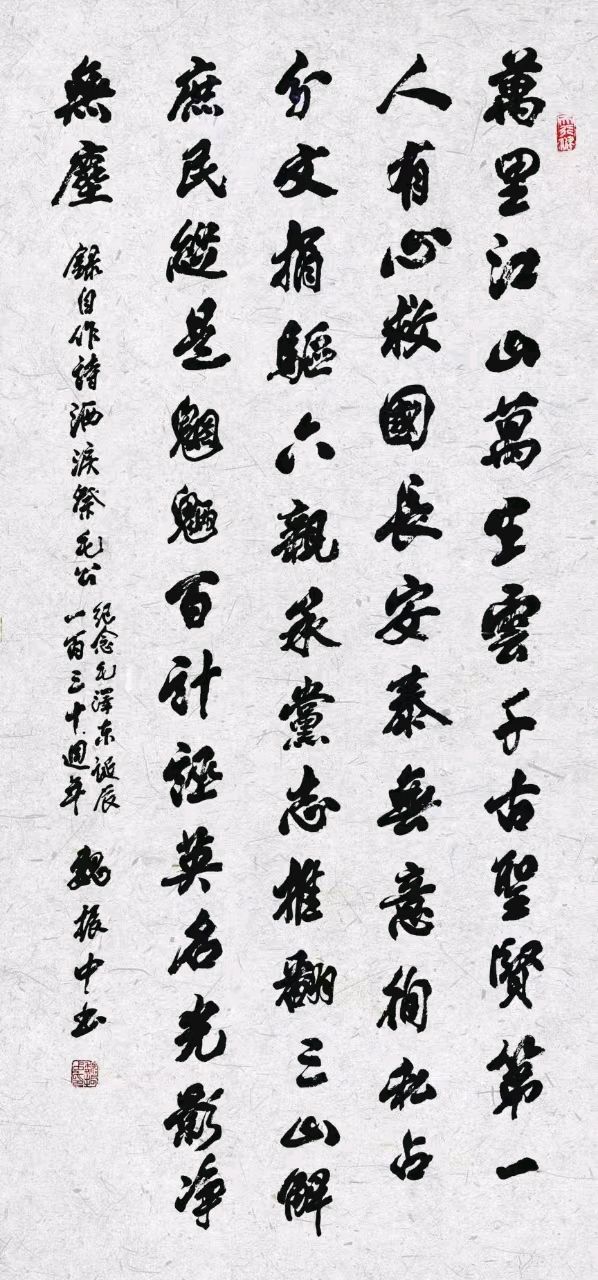 萬里江山萬里雲千古聖賢第一
人有心救國長安泰無意徇私占
分文捐驅六親承黨志推翻三山解
庶民縱是魍魎百計誣英名光影淨
無塵
錄自作詩洒淚祭毛公
紀念毛澤東誕辰
一百三十週年
魏振中書